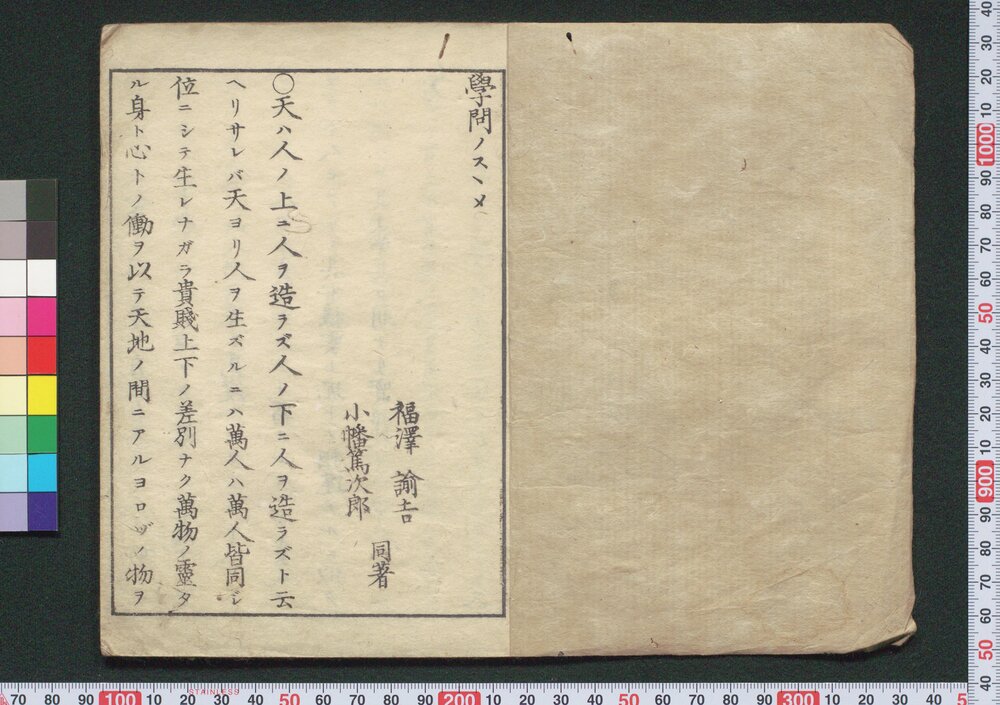 學問ノスヽメ
福澤諭吉
小幡篤次郎
同著
〇天ハ人ノ上ニ人ヲ造ラズ人ノ下ニ人ヲ造ラズト云
ヘリサレバ天ヨリ人ヲ生ズルニハ萬人ハ萬人皆同ジ
位ニシテ生レナガラ貴賤上下ノ差別ナク萬物ノ靈タ
ル身ト心トノ働ヲ以テ天地ノ間ニアルヨロヅノ物ヲ
40 30 20 10 1000 90 80 70 60 50 40 30 20 10 900 90 80 70 60 50 40
70 80 90 100 10 20 30 40 50 60 70 80 90 200 10 20 30 40 50 60 70 80 90 300 10 20 30 40
STAINLESS